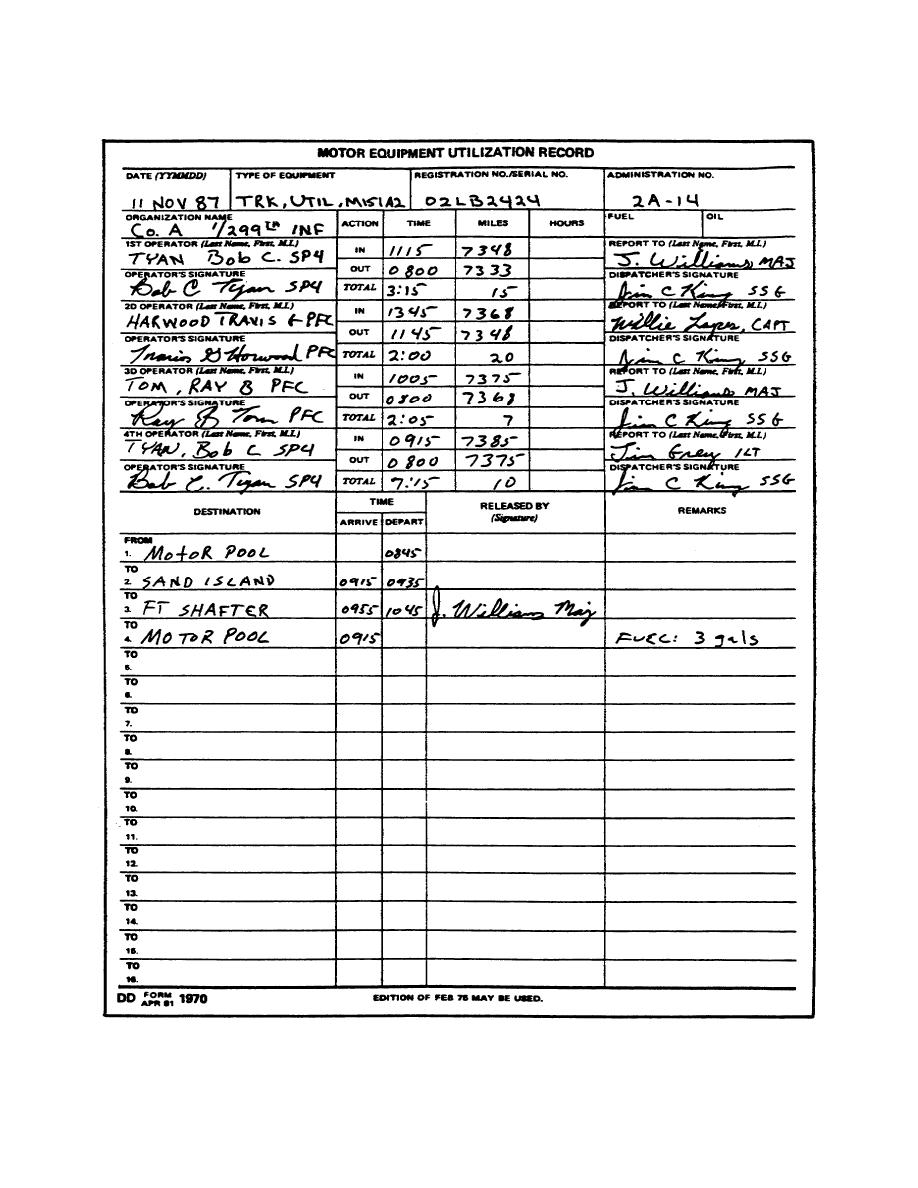 MOTOR EQUIPMENT UTILIZATION RECORD
DATE (YYMMDD) TYPE OF EQUIPMENT REGISTRATION NO./SERIAL NO. ADMINISTRATION NO.
11 NOV 87 TRK, UTIL, M151A2 02LB2424 2A-14
ORGANIZATION NAME ACTION TIME MILES HOURS FUEL OIL
Co. A 1/299th INF
1ST OPERATOR (Last Name, First, M.I.) IN 1115 7348 REPORT TO (Last Name, First, M.I.)
TYAN Bob C. SP4 J. Williams MAJ
OPERATOR'S SIGNATURE OUT 0800 7333 DISPATCHER'S SIGNATURE
Bob C Tyan SP4 TOTAL 3:15 15 Jim C King SSG
2D OPERATOR (Last Name, First, M.I.) IN 1345 7368 REPORT TO (Last Name, First, M.I.)
HARWOOD TRAVIS G PFC Willie Lopes, CAPT
OPERATOR'S SIGNATURE OUT 1145 7348 DISPATCHER'S SIGNATURE
Travis G Harwood PFC TOTAL 2:00 20 Jim C King SSG
3D OPERATOR (Last Name, First, M.I.) IN 1005 7375 REPORT TO (Last Name, First, M.I.)
TOM, RAY B PFC J. Williams MAJ
OPERATOR'S SIGNATURE OUT 0800 7368 DISPATCHER'S SIGNATURE
Ray B Tom PFC TOTAL 2:05 7 Jim C King SSG
4TH OPERATOR (Last Name, First, M.I.) IN 0915 7385 REPORT TO (Last Name, First, M.I.)
TYAN, Bob C SP4 Jim Grey 1LT
OPERATOR'S SIGNATURE OUT 0800 7375 DISPATCHER'S SIGNATURE
Bob C. Tyan SP4 TOTAL 7:15 10 Jim C King SSG
DESTINATION TIME RELEASED BY (Signature) REMARKS
ARRIVE DEPART
FROM
1. MOTOR POOL 0845
TO
2. SAND ISLAND 0915 0935
TO
3. FT SHAFTER 0955 1045 J. Williams Maj
TO
4. MOTOR POOL 0915 FUEL: 3 gals
TO
5.
TO
6.
TO
7.
TO
8.
TO
9.
TO
10.
TO
11.
TO
12.
TO
13.
TO
14.
TO
15.
TO
16.
DD FORM APR 81 1970 EDITION OF FEB 75 MAY BE USED.